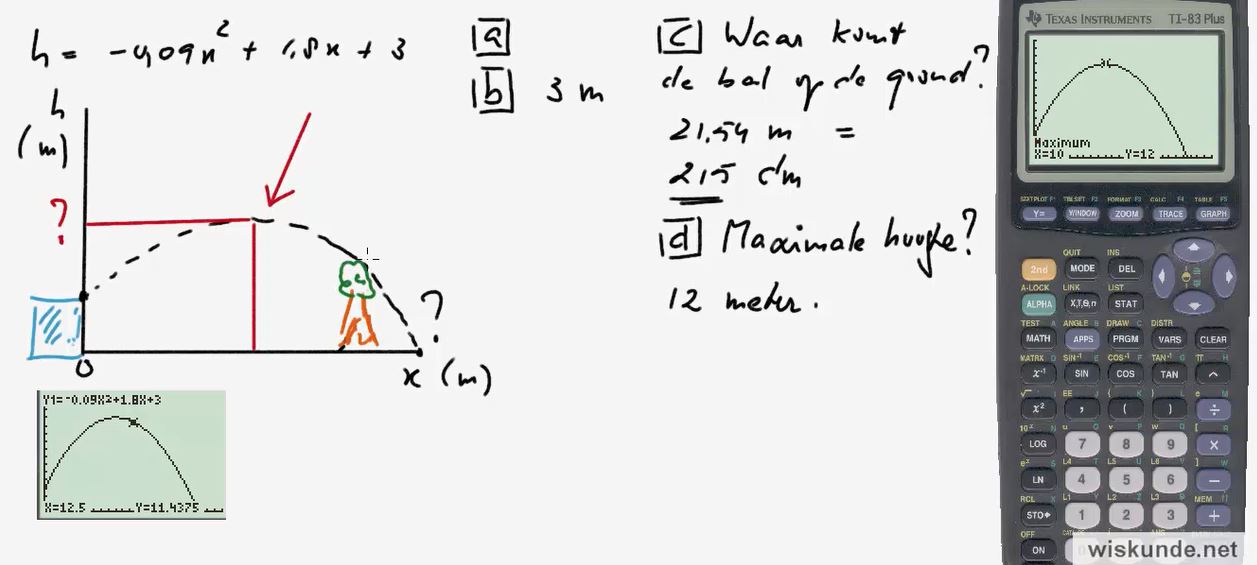 h = -0,09x² + 1,8x + 3
h
(m)
?
0
?
x (m)
Y1=-0.09X²+1.8X+3
X=12.5 Y=11.4375
a
b 3 m
c Waar komt
de bal op de grond?
21,54 m =
215 dm
d Maximale hoogte?
12 meter.
TEXAS INSTRUMENTS TI-83 Plus
Maximum
X=10 Y=12
STAT PLOT F1 TBLSET F2 FORMAT F3 CALC F4 TABLE F5
Y= WINDOW ZOOM TRACE GRAPH
QUIT INS
2nd MODE DEL
A-LOCK LINK LIST
ALPHA X,T,θ,n STAT
TEST A ANGLE B DRAW C DISTR
MATH APPS PRGM VARS CLEAR
MATRX D SIN⁻¹ E COS⁻¹ F TAN⁻¹ G π H
x⁻¹ SIN COS TAN ^
√ I EE J { K } L e M
x² , ( ) ÷
10ˣ N u O v P w Q [ R
LOG 7 8 9 ×
eˣ S L4 T L5 U L6 V ] W
LN 4 5 6 −
RCL X L1 Y L2 Z L3 θ MEM "
STO▸ 1 2 3 +
OFF
ON
wiskunde.net